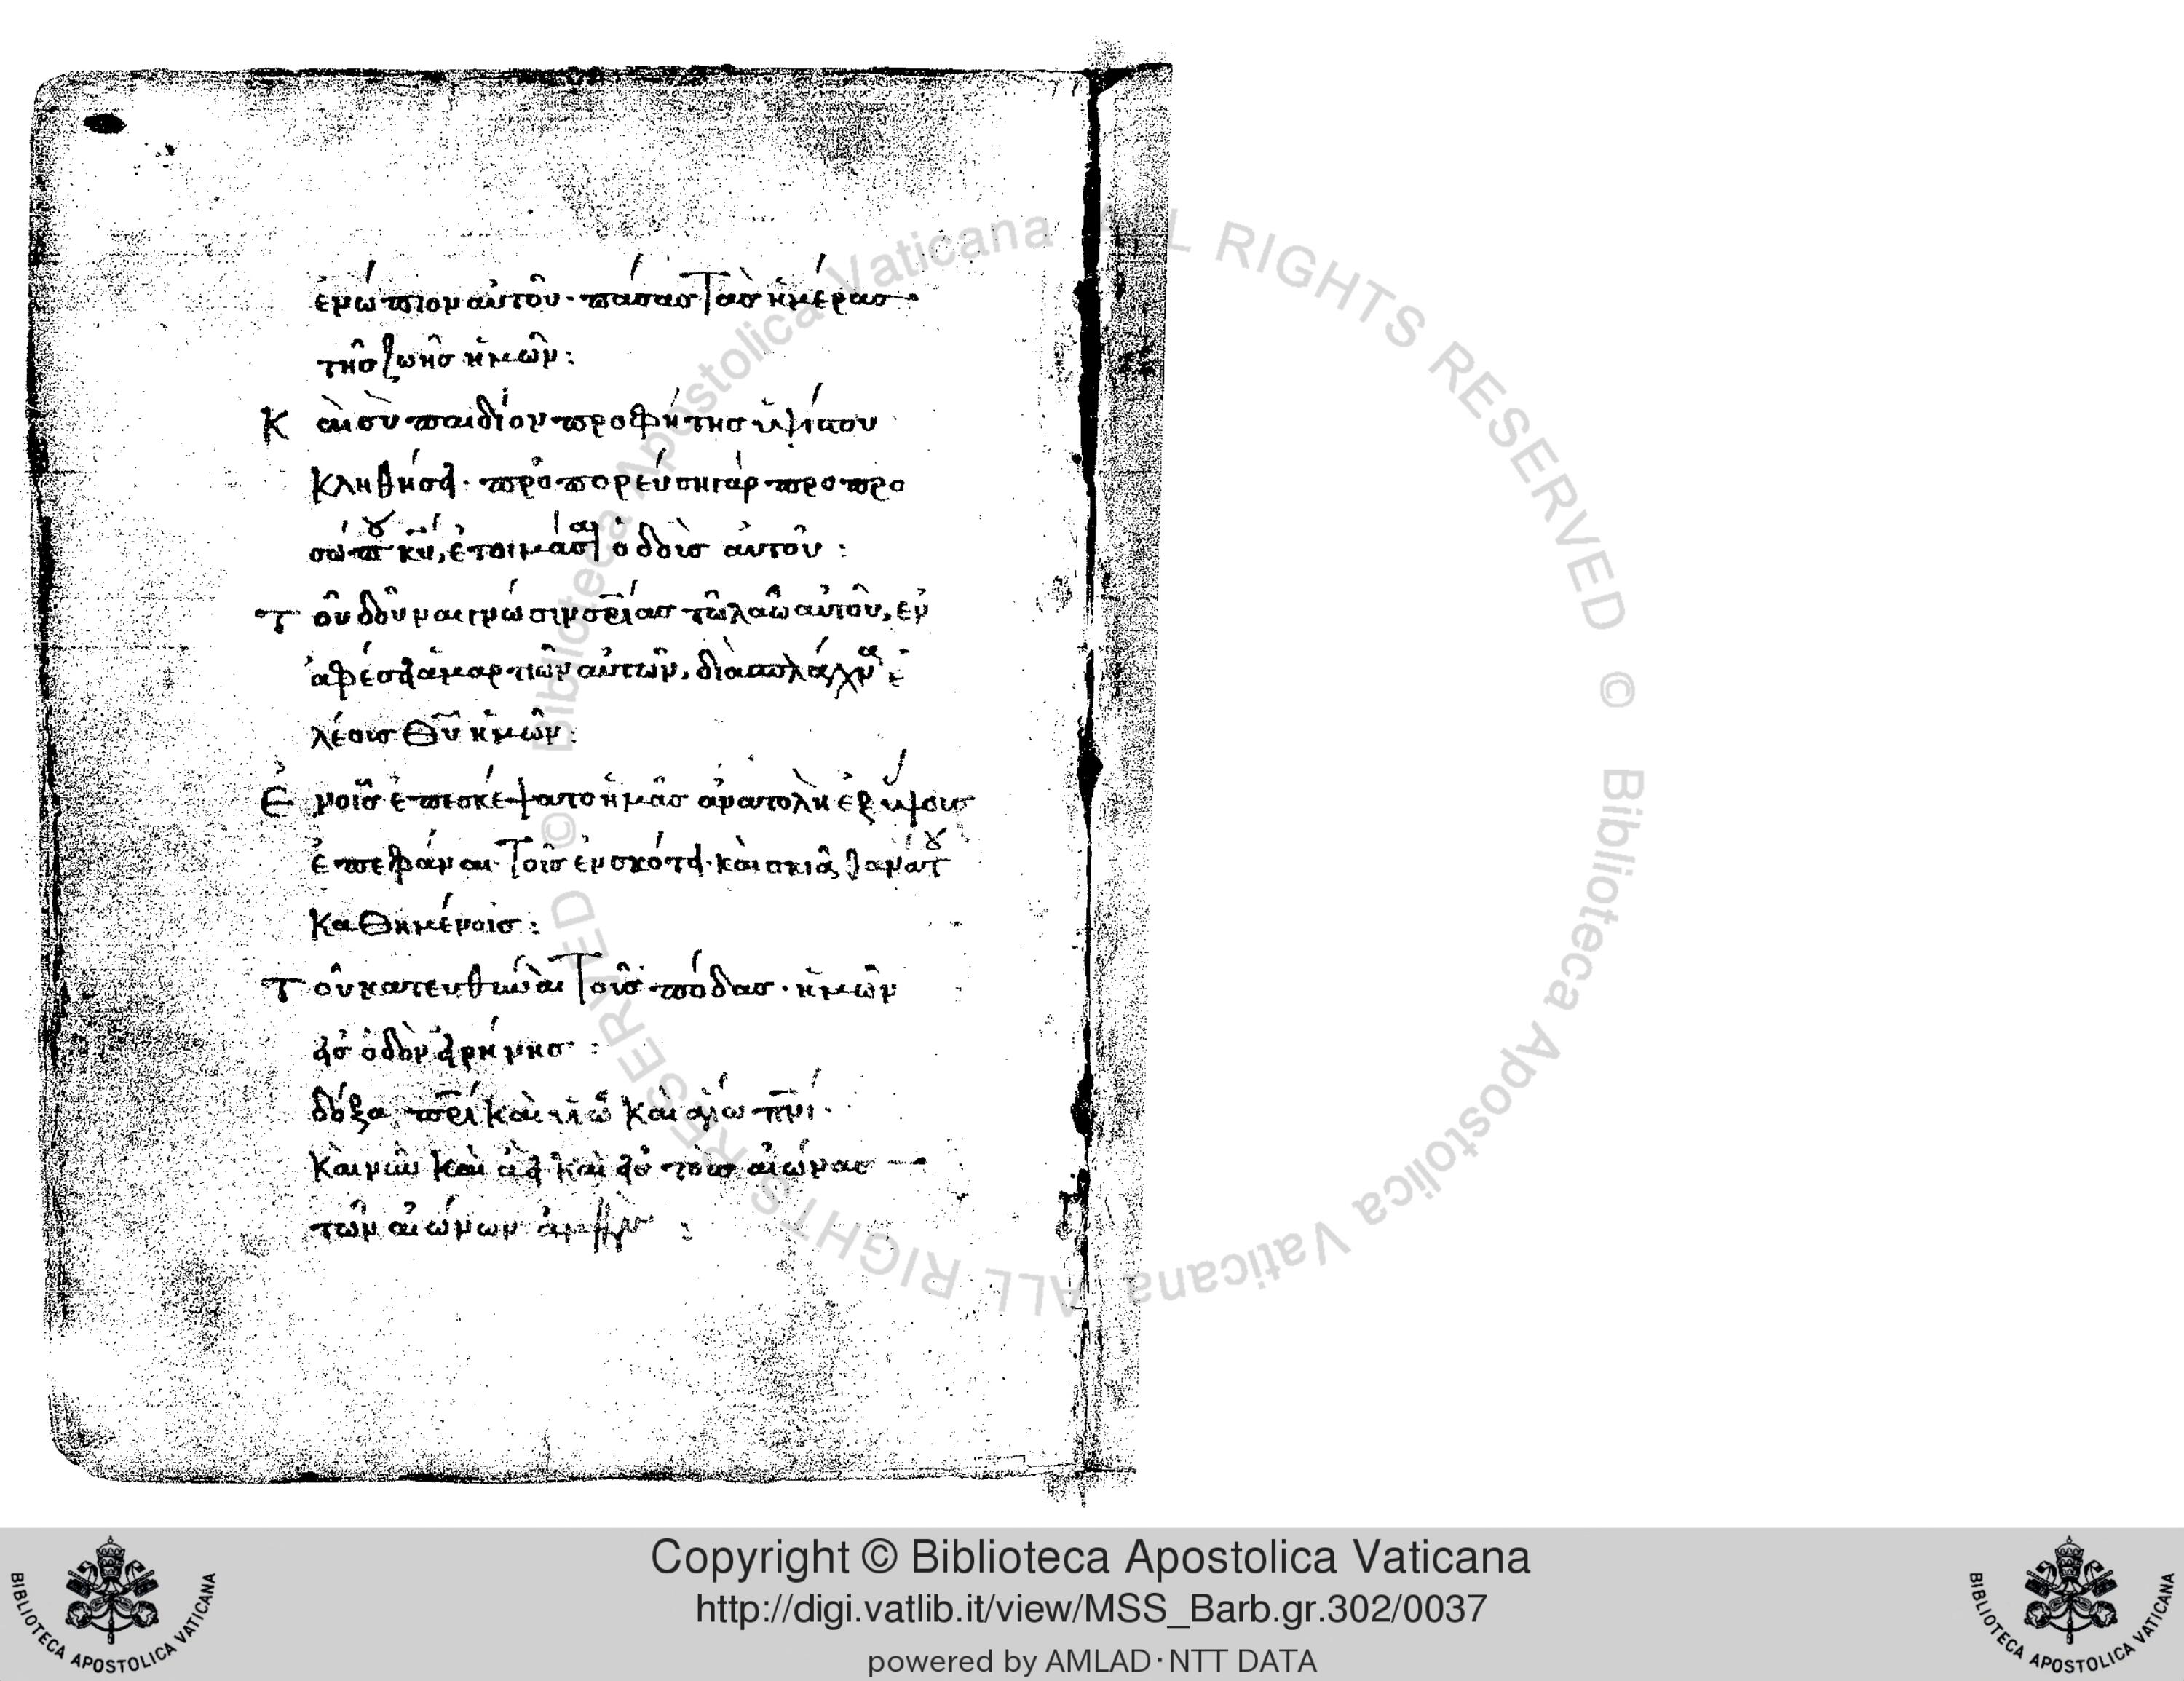 ἐνώπιον αὐτοῦ· πάσας τὰς ἡμέρας
τῆς ζωῆς ἡμῶν:
Καὶ σὺ παιδίον προφήτης ὑψίστου
κληθήσει· προπορεύσῃ γὰρ προ προ
σώπου κ̅υ̅, ἑτοιμάσαι ὁδοὺς αὐτοῦ:
Τοῦ δοῦναι γνῶσιν σ̅ρ̅ίας τῷ λαῷ αὐτοῦ, ἐν
ἀφέσει ἁμαρτιῶν αὐτῶν, διὰ σπλάγχνα ἐ
λέους Θ̅υ̅ ἡμῶν:
Ἐν οἷς ἐπεσκέψατο ἡμᾶς ἀνατολὴ ἐξ ὕψους
ἐπιφάναι τοῖς ἐν σκότει· καὶ σκιᾷ θανάτου
καθημένοις:
Τοῦ κατευθῦναι τοὺς πόδας ἡμῶν
εἰς ὁδὸν εἰρήνης:
δόξα π̅ρ̅ι̅ καὶ υἱῷ καὶ ἁγίῳ π̅ν̅ι̅·
καὶ νῦν καὶ ἀεὶ καὶ εἰς τοὺς αἰῶνας
τῶν αἰώνων ἀμήν:
Copyright © Biblioteca Apostolica Vaticana
http://digi.vatlib.it/view/MSS_Barb.gr.302/0037
powered by AMLAD·NTT DATA
BIBLIOTECA APOSTOLICA VATICANA
BIBLIOTECA APOSTOLICA VATICANA
© Biblioteca Apostolica Vaticana ALL RIGHTS RESERVED © Biblioteca Apostolica Vaticana ALL RIGHTS RESERVED